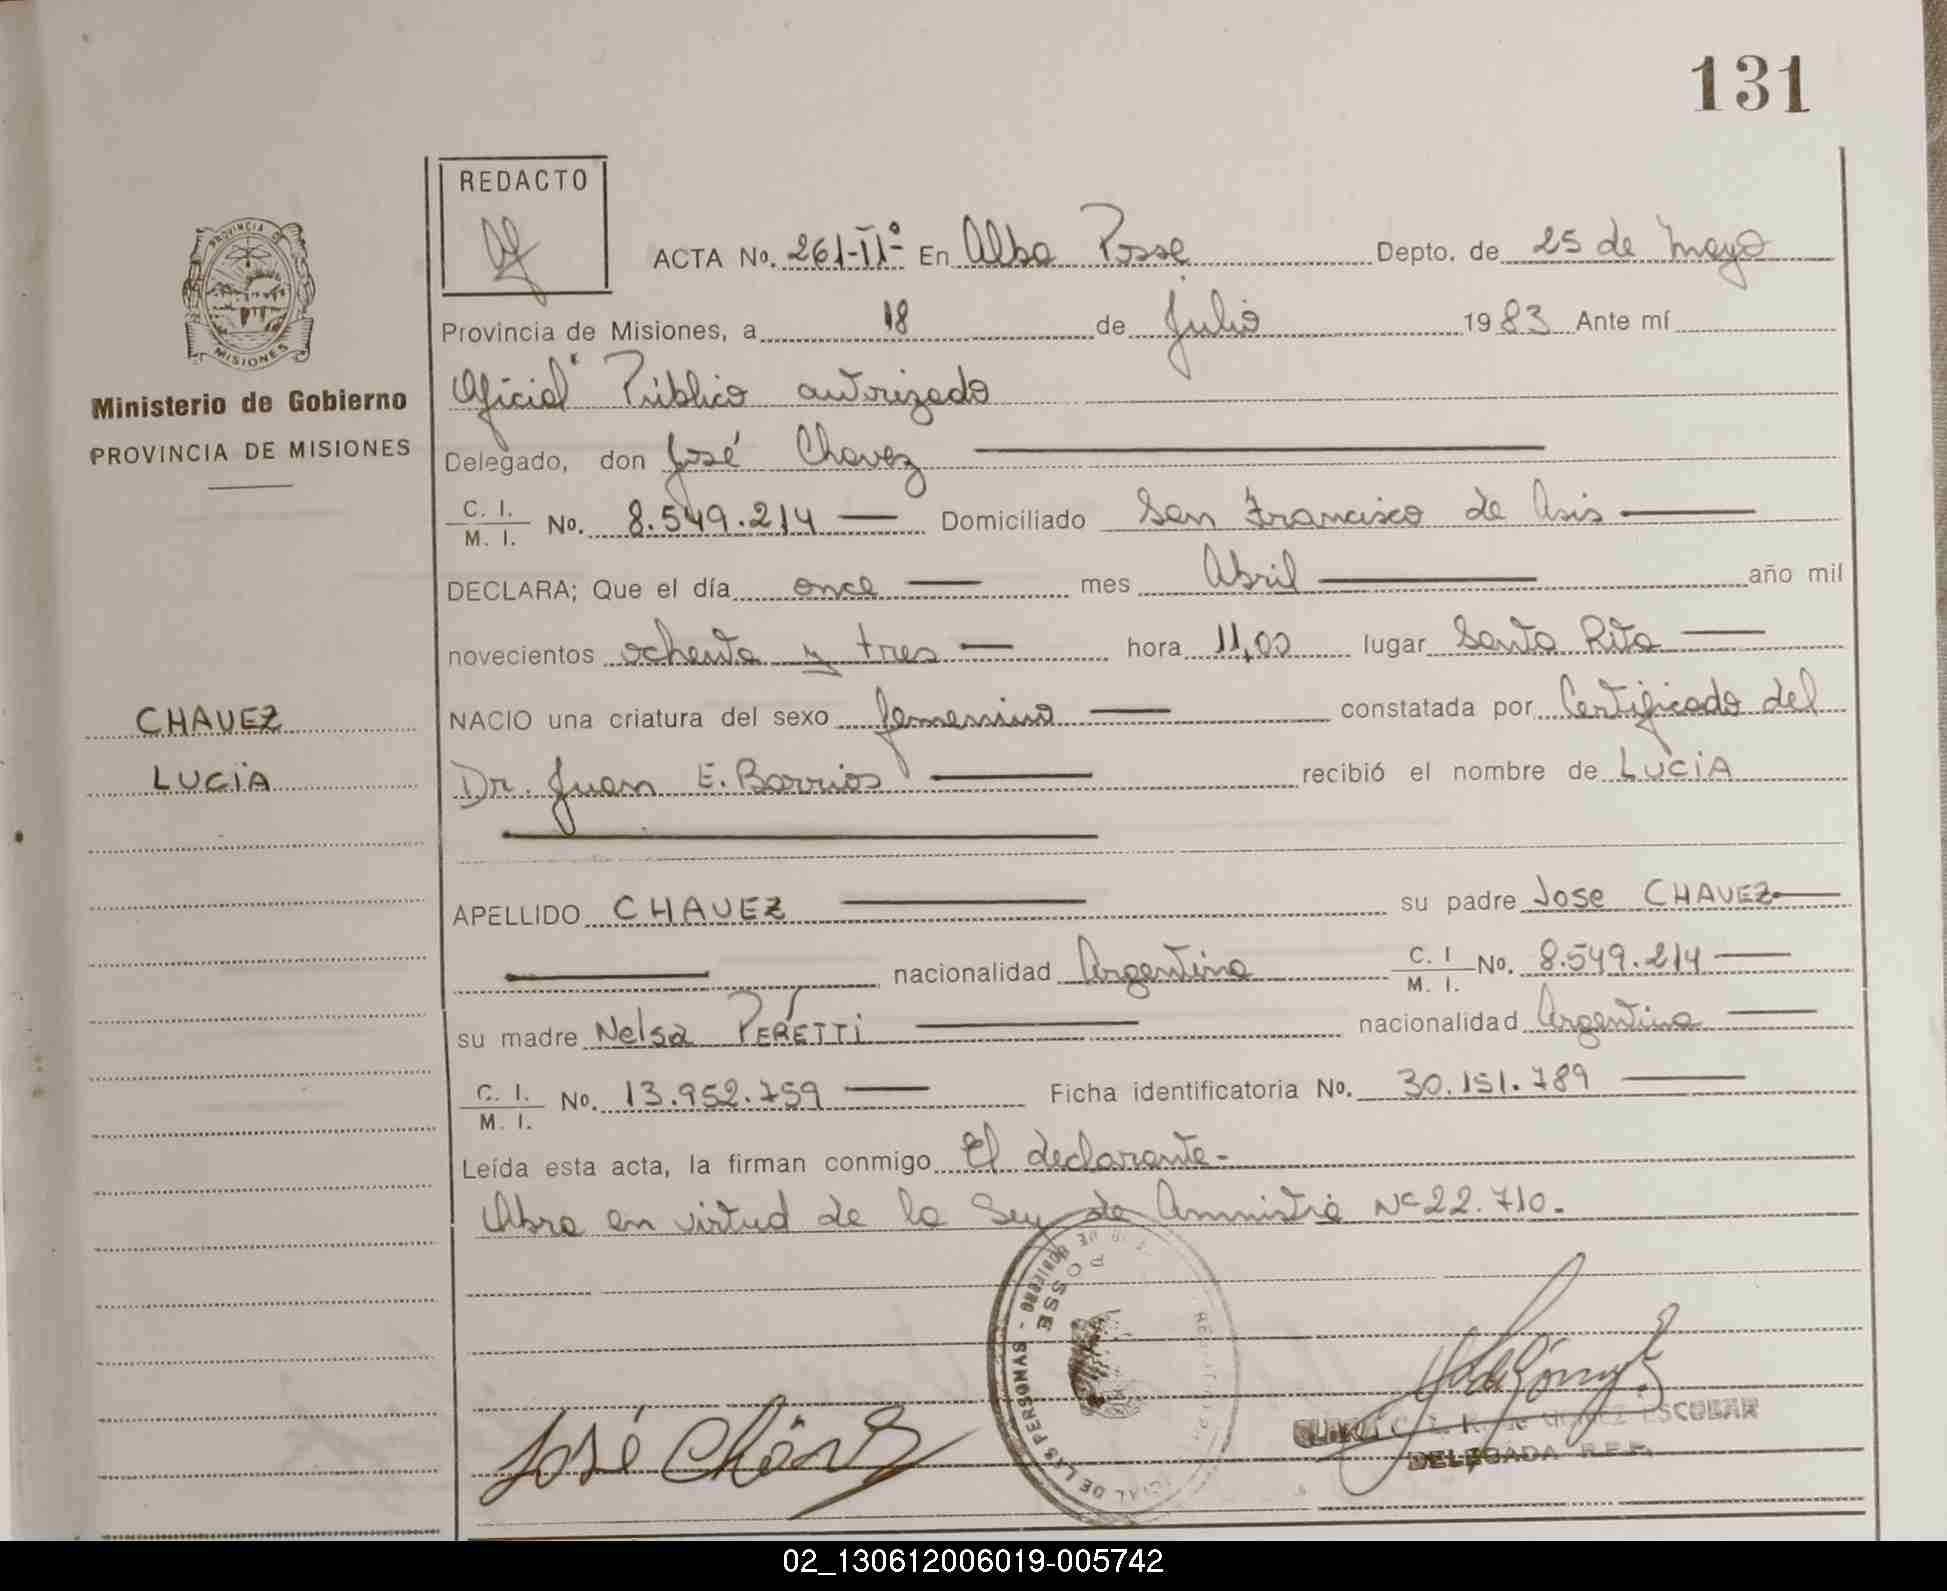 131
REDACTO
ACTA No. 261-IIº En Alba Posse Depto. de 25 de Mayo
PROVINCIA DE
MISIONES
Provincia de Misiones, a 18 de Julio 1983 Ante mí
Ministerio de Gobierno
Oficial Público autorizado
PROVINCIA DE MISIONES
Delegado, don José Chavez
C. I.
M. I. No. 8.549.214 Domiciliado San Francisco de Asis
DECLARA; Que el día once mes Abril año mil
novecientos ochenta y tres hora 11,00 lugar Santa Rita
CHAVEZ
NACIO una criatura del sexo femenino constatada por Certificado del
LUCIA
Dr. Juan E. Barrios recibió el nombre de LUCIA
APELLIDO CHAVEZ su padre Jose CHAVEZ
nacionalidad Argentina C. I M. I. No. 8.549.214
su madre Nelsa PERETTI nacionalidad Argentina
C. I. M. I. No. 13.952.759 Ficha identificatoria No. 30.151.789
Leída esta acta, la firman conmigo El declarante-
Abra en virtud de la Ley de Amnistia Nº 22.710.
POSSE
GOBIERNO - DE LAS PERSONAS
José Chávez
ESCOBAR
DELEGADA R.E.P.
02_130612006019-005742